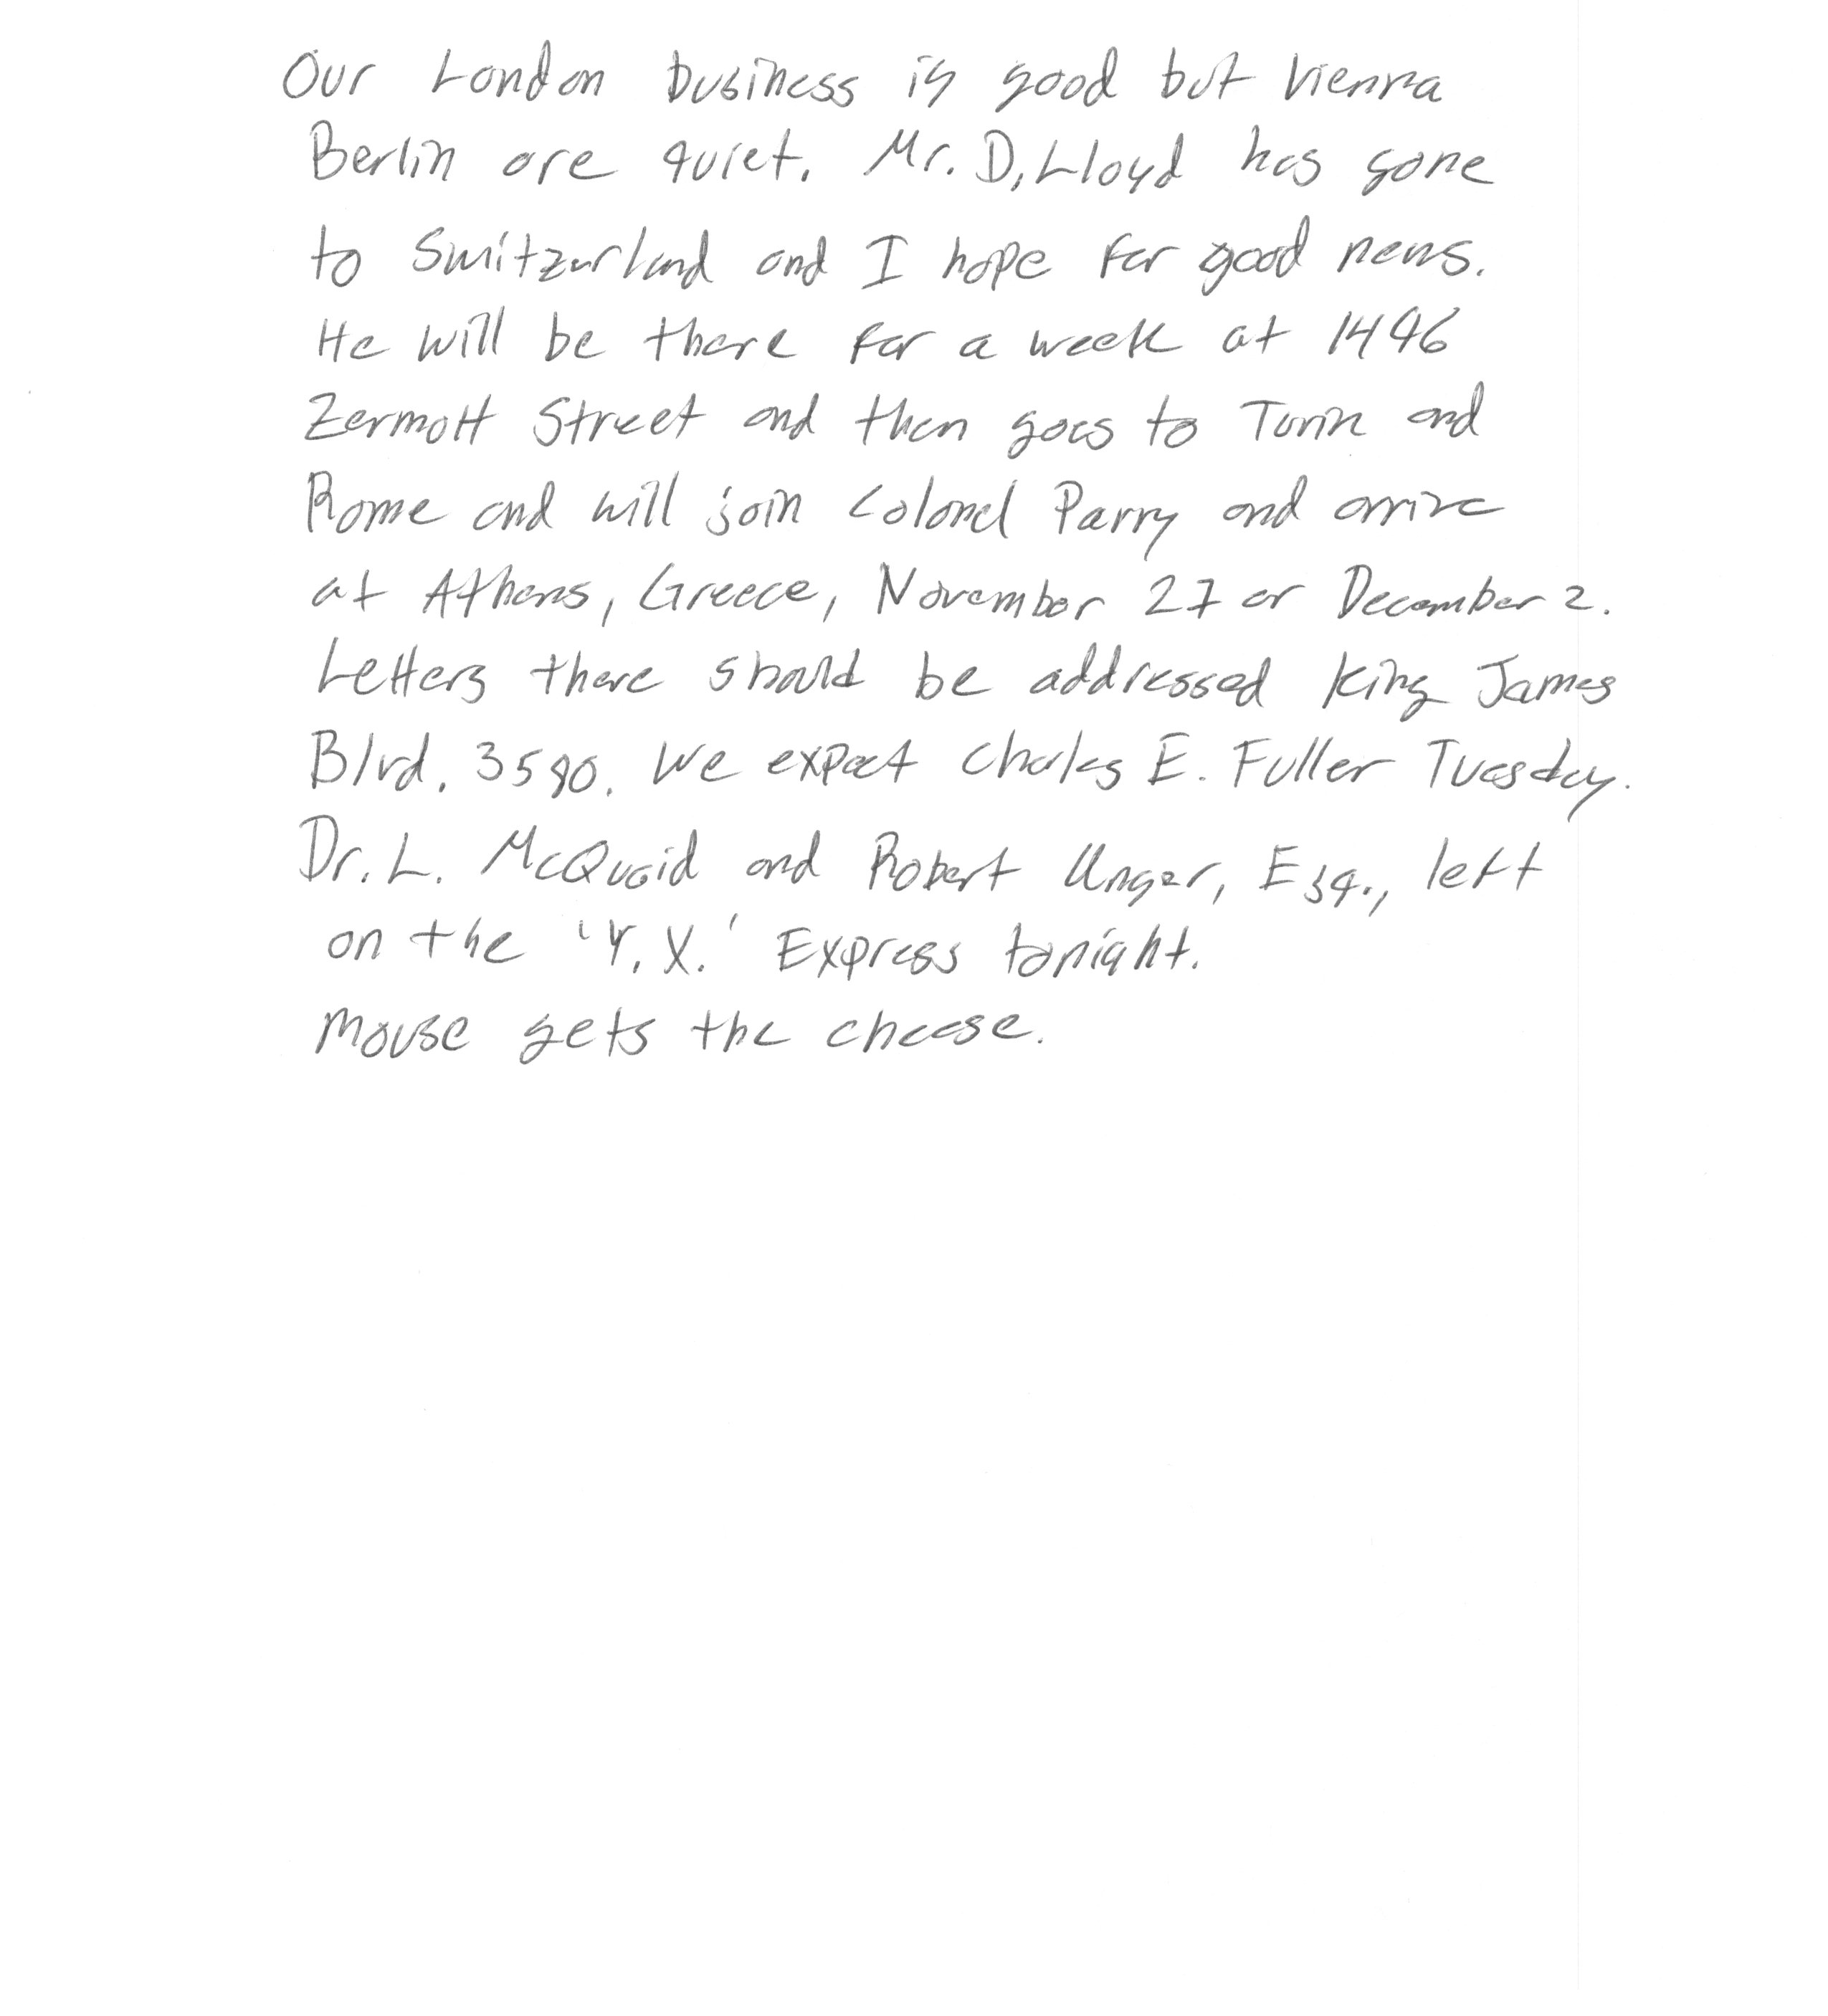 Our London business is good but Vienna
Berlin are quiet. Mr. D. Lloyd has gone
to Switzurland and I hope for good news.
He will be there for a week at 1496
Zermott Street and then goes to Turin and
Rome and will join Colonel Parry and arrive
at Athens, Greece, November 27 or December 2.
Letters there should be addressed King James
Blvd. 3580. We expect Charles E. Fuller Tuesday.
Dr. L. McQuaid and Robert Unger, Esq., left
on the 'Y.X.' Express tonight.
Mouse gets the cheese.